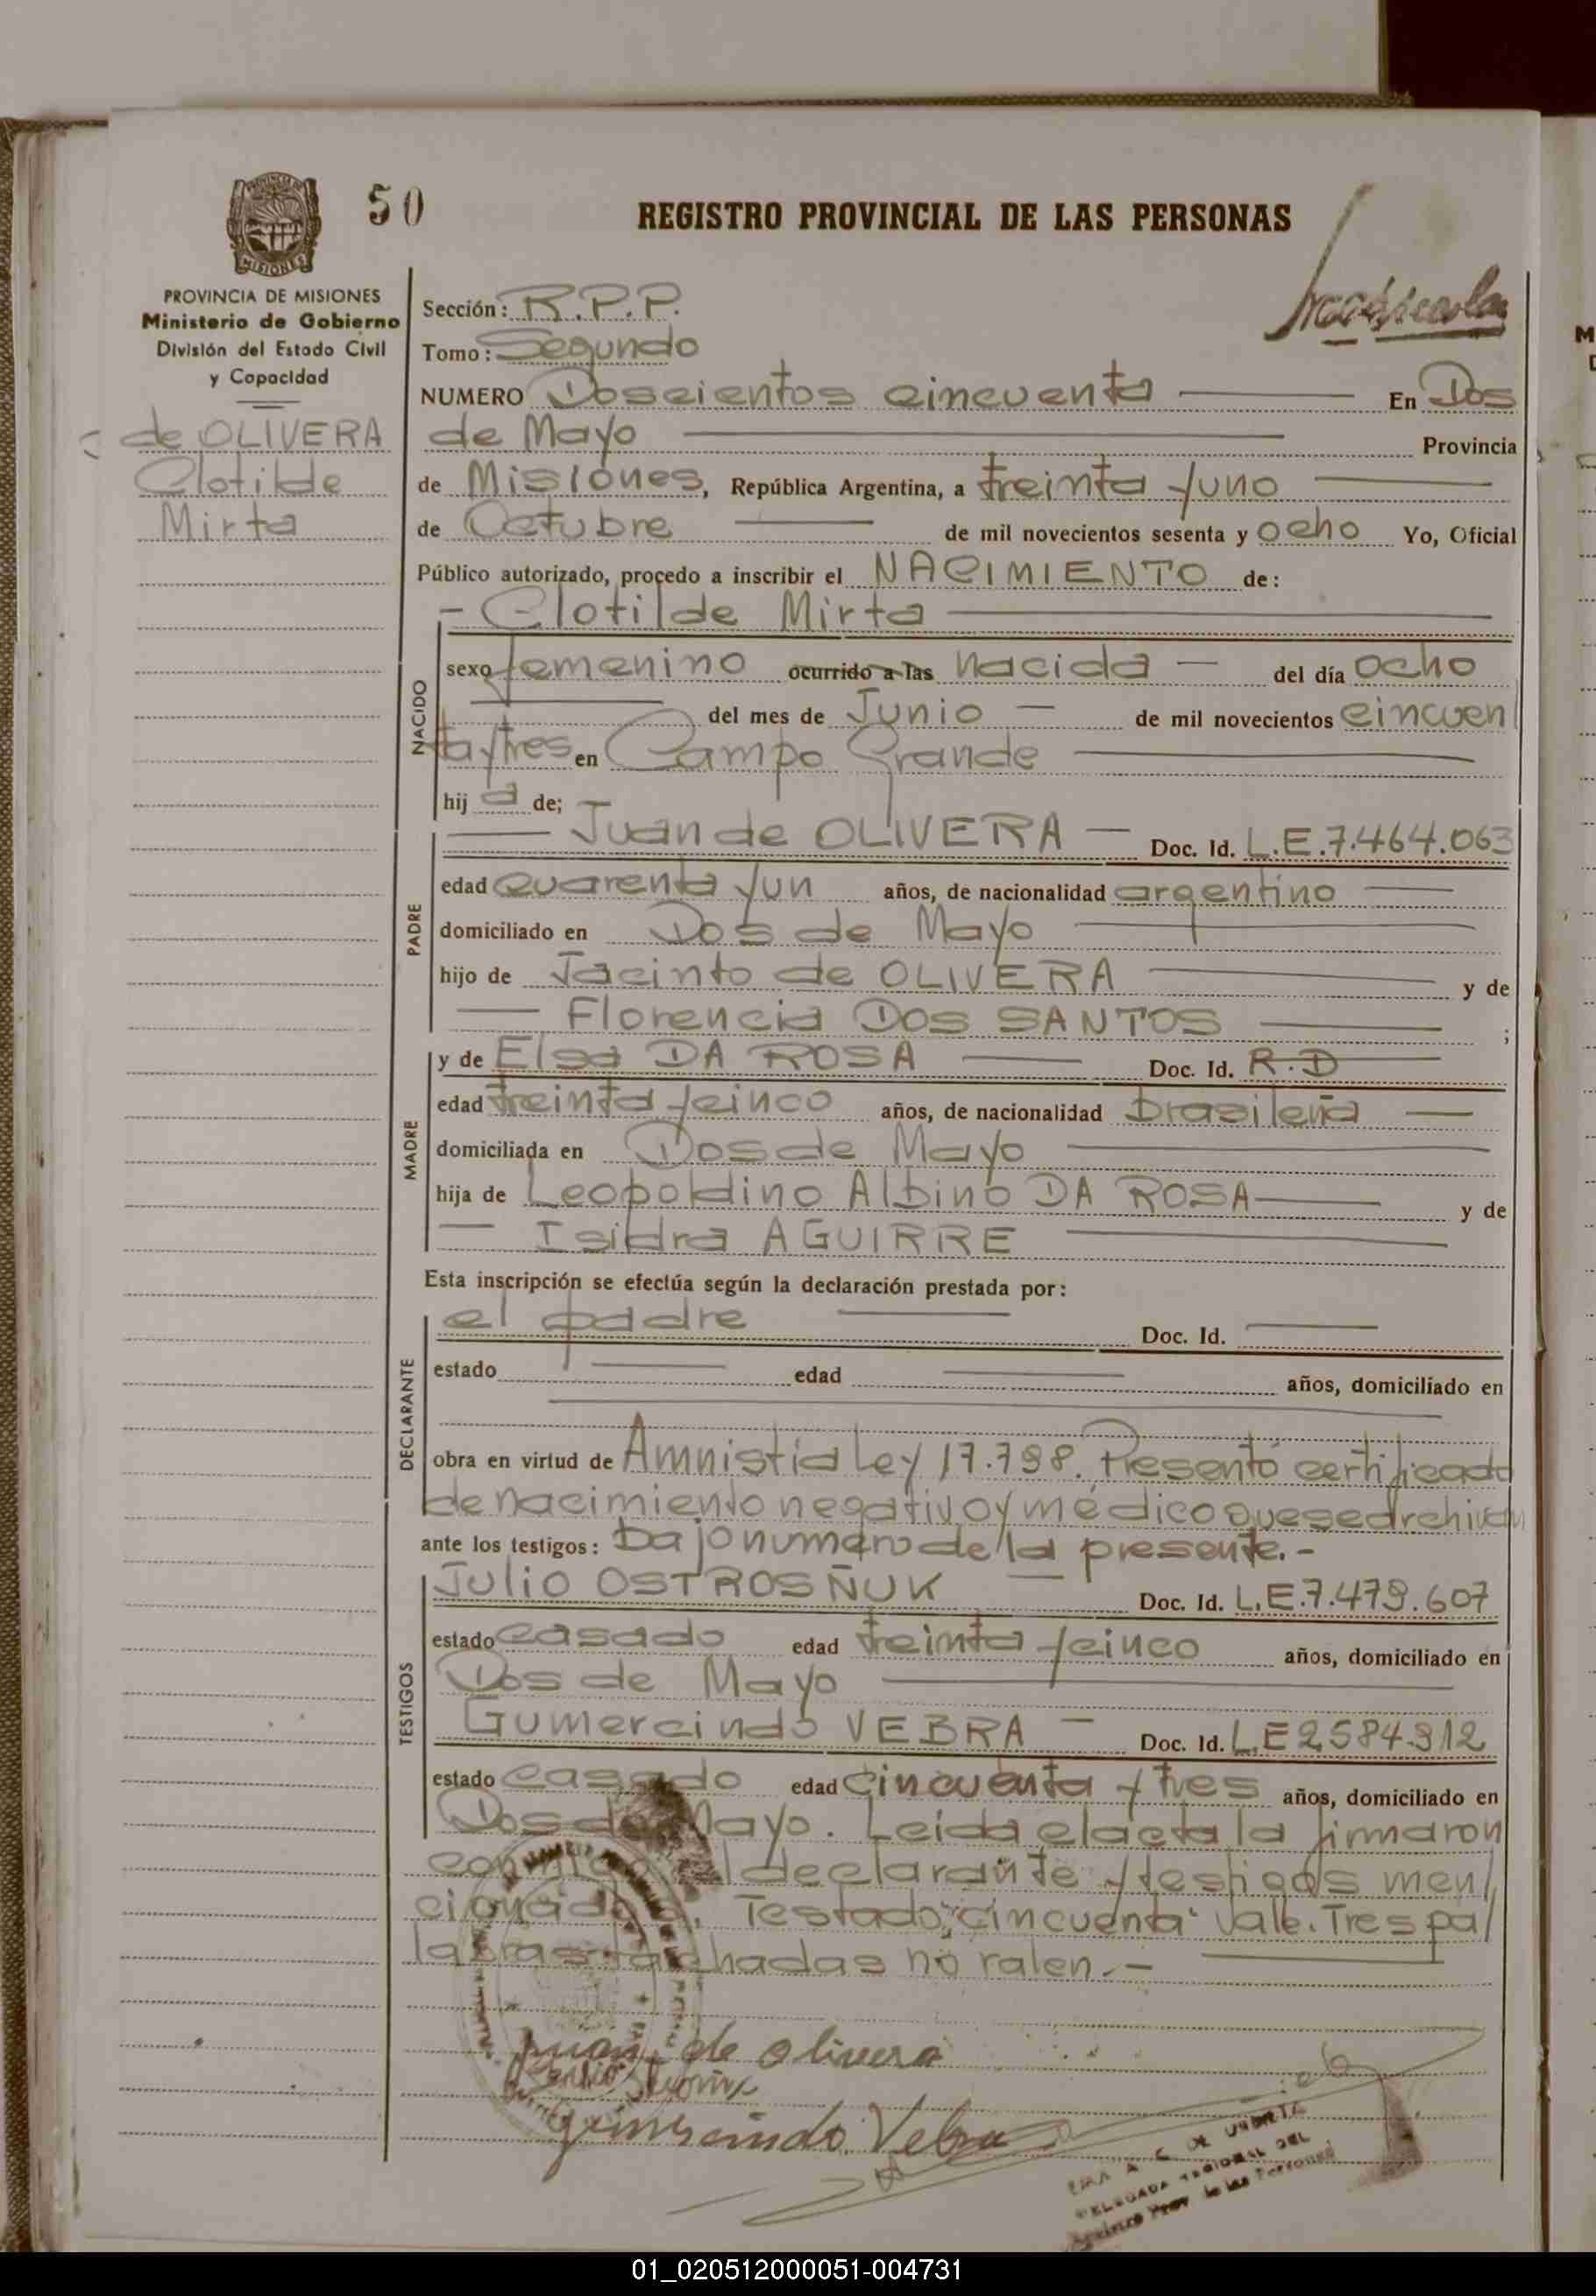 50
REGISTRO PROVINCIAL DE LAS PERSONAS
PROVINCIA DE MISIONES
Ministerio de Gobierno
División del Estado Civil
y Capacidad
de OLIVERA
Clotilde
Mirta
Sección: R.P.P.
Tomo: Segundo
NUMERO Doscientos cincuenta En Dos
de Mayo Provincia
de Misiones, República Argentina, a treinta y uno
de Octubre de mil novecientos sesenta y ocho Yo, Oficial
Público autorizado, procedo a inscribir el NACIMIENTO de:
- Clotilde Mirta
NACIDO
sexo femenino ocurrido a las nacida del día ocho
del mes de Junio de mil novecientos cincuen
ta y tres en Campo Grande
hij a de;
PADRE
Juan de OLIVERA Doc. Id. L.E.7.464.063
edad cuarenta y un años, de nacionalidad argentino
domiciliado en Dos de Mayo
hijo de Jacinto de OLIVERA y de
Florencia DOS SANTOS ;
MADRE
y de Elsa DA ROSA Doc. Id. R.D
edad treinta y cinco años, de nacionalidad brasileña
domiciliada en Dos de Mayo
hija de Leopoldino Albino DA ROSA y de
Isidra AGUIRRE
Esta inscripción se efectúa según la declaración prestada por:
DECLARANTE
el padre Doc. Id.
estado edad años, domiciliado en
obra en virtud de Amnistía Ley 17.798. Presentó certificado
de nacimiento negativo y médico que se archivan
ante los testigos: bajo numero de la presente.-
TESTIGOS
Julio OSTROSÑUK Doc. Id. L.E.7.479.607
estado casado edad treinta y cinco años, domiciliado en
Dos de Mayo
Gumercindo VEBRA Doc. Id. L.E 2,584.312
estado casado edad cincuenta y tres años, domiciliado en
Dos de Mayo. Leida el acta la firmaron
conmigo el declarante y testigos men
cionados. Testado "cincuenta" vale. Tres pa
labras tachadas no valen.-
Juan de olivera
Gumercindo Vebra
DELEGADA REGIONAL DEL
Registro Prov. de las Personas
01_020512000051-004731